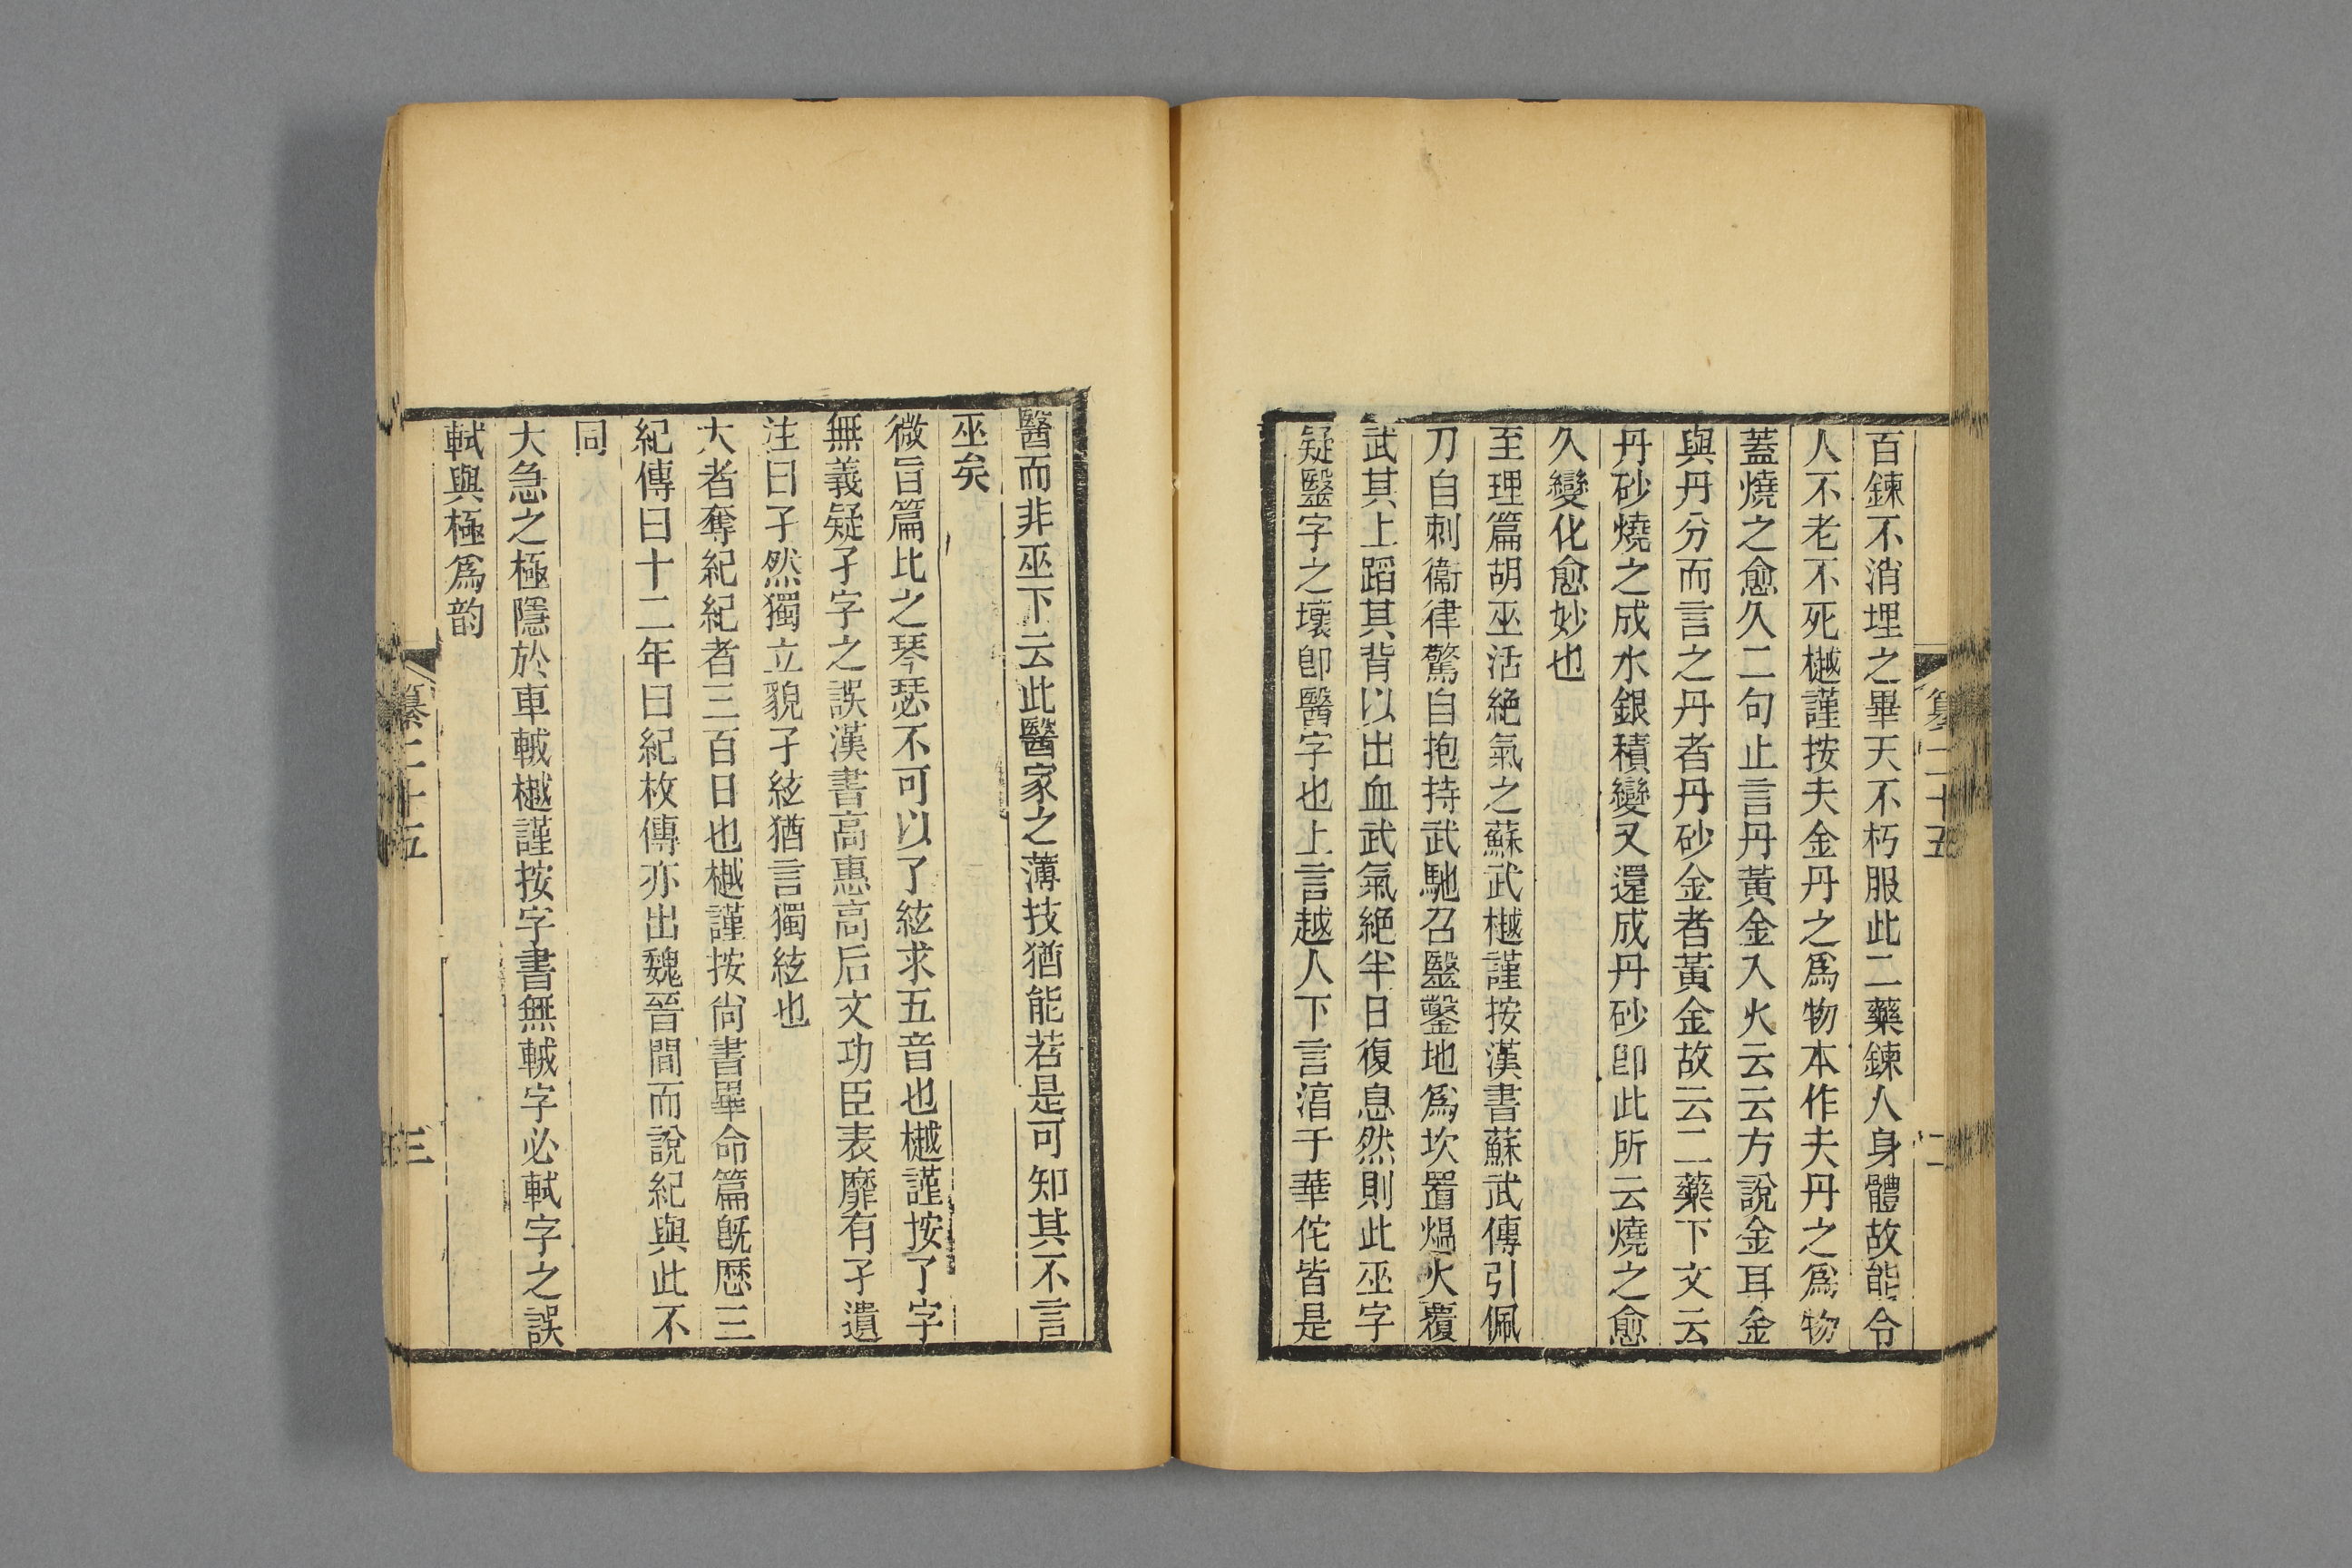 百鍊不消埋之畢天不朽服此二藥鍊人身體故能令
人不老不死樾謹按夫金丹之爲物本作夫丹之爲物
蓋燒之愈久二句止言丹黃金入火云云方說金耳金
與丹分而言之丹者丹砂金者黃金故云二藥下文云
丹砂燒之成水銀積變又還成丹砂卽此所云燒之愈
久變化愈妙也
至理篇胡巫活絕氣之蘇武樾謹按漢書蘇武傳引佩
刀自刺衞律驚自抱持武馳召毉鑿地爲坎置熅火覆
武其上蹈其背以出血武氣絕半日復息然則此巫字
疑毉字之壞卽醫字也上言越人下言湻于華佗皆是
纂二十五
二
醫而非巫下云此醫家之薄技猶能若是可知其不言
巫矣
微旨篇比之琴瑟不可以了絃求五音也樾謹按了字
無義疑孑字之誤漢書高惠高后文功臣表靡有孑遺
注曰孑然獨立貌孑絃猶言獨絃也
大者奪紀紀者三百日也樾謹按尙書畢命篇旣歴三
紀傳曰十二年曰紀枚傳亦出魏晉間而說紀與此不
同
大急之極隱於車軾樾謹按字書無軾字必軾字之誤
軾與極爲韵
纂二十五
三